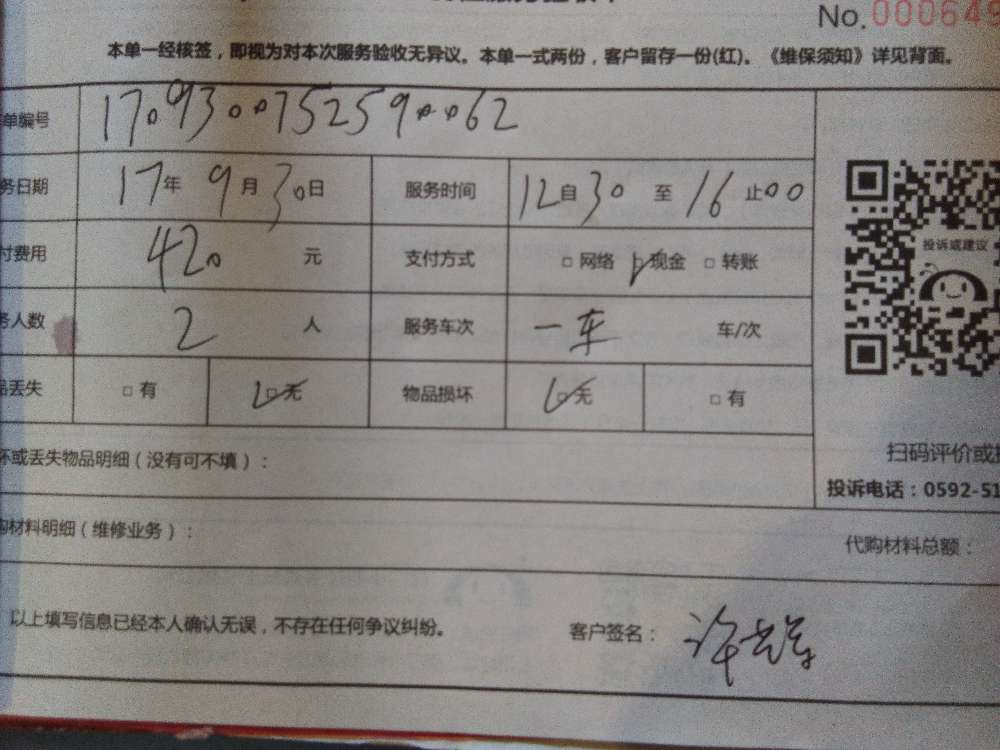 No.000649
本单一经核签，即视为对本次服务验收无异议。本单一式两份，客户留存一份(红)。《维保须知》详见背面。
单编号 1709300752590062
务日期 17年 9月 30日 服务时间 12自30 至 16止00
付费用 420 元 支付方式 □ 网络 □ 现金 □ 转账
务人数 2 人 服务车次 一车 车/次
品丢失 □ 有 □ 无 物品损坏 □ 无 □ 有
投诉或建议
坏或丢失物品明细（没有可不填）：
扫码评价或
投诉电话：0592-51
购材料明细（维修业务）：
代购材料总额：
以上填写信息已经本人确认无误，不存在任何争议纠纷。
客户签名：许